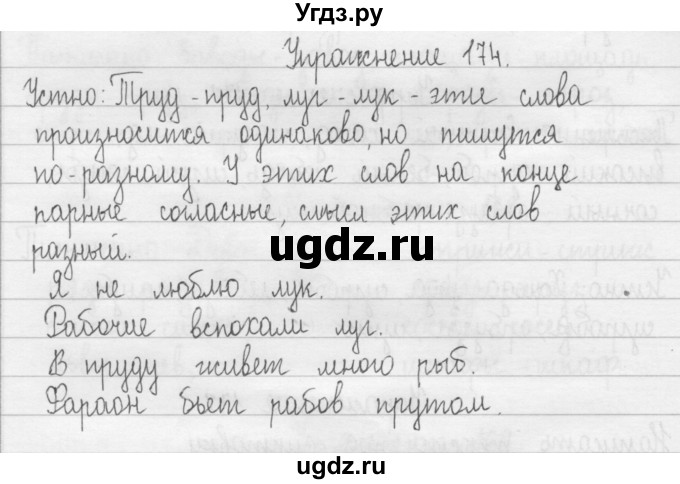 Угдз.ру
Упражнение 174.
Устно: Труд - пруд, луг - лук - эти слова
произносится одинаково, но пишутся
по-разному. У этих слов на конце
парные согласные, смысл этих слов
разный.
Я не люблю лук.
Рабочие вспохали луг.
В пруду живет много рыб.
Фараон бьет рабов прутом.
ugdz.ru
ugdz.ru